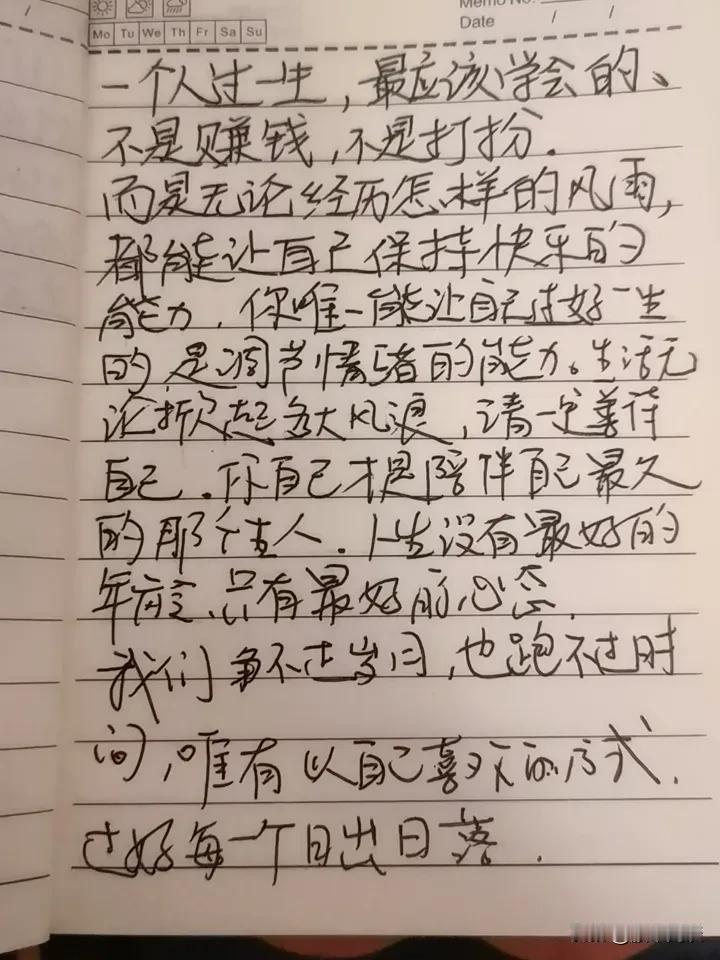 Memo No.
Mo Tu We Th Fr Sa Su
Date / /
一个人过一生，最应该学会的、
不是赚钱，不是打扮.
而是无论经历怎样的风雨，
都能让自己保持快乐的
能力．你唯一能让自己过好一生
的是调节情绪的能力。生活无
论掀起多大风浪，请一定善待
自己．你自己才是陪伴自己最久
的那个人．人生没有最好的
年龄、只有最好的心态．
我们争不过岁月，也跑不过时
间，唯有以自己喜欢的方式．
过好每一个日出日落．